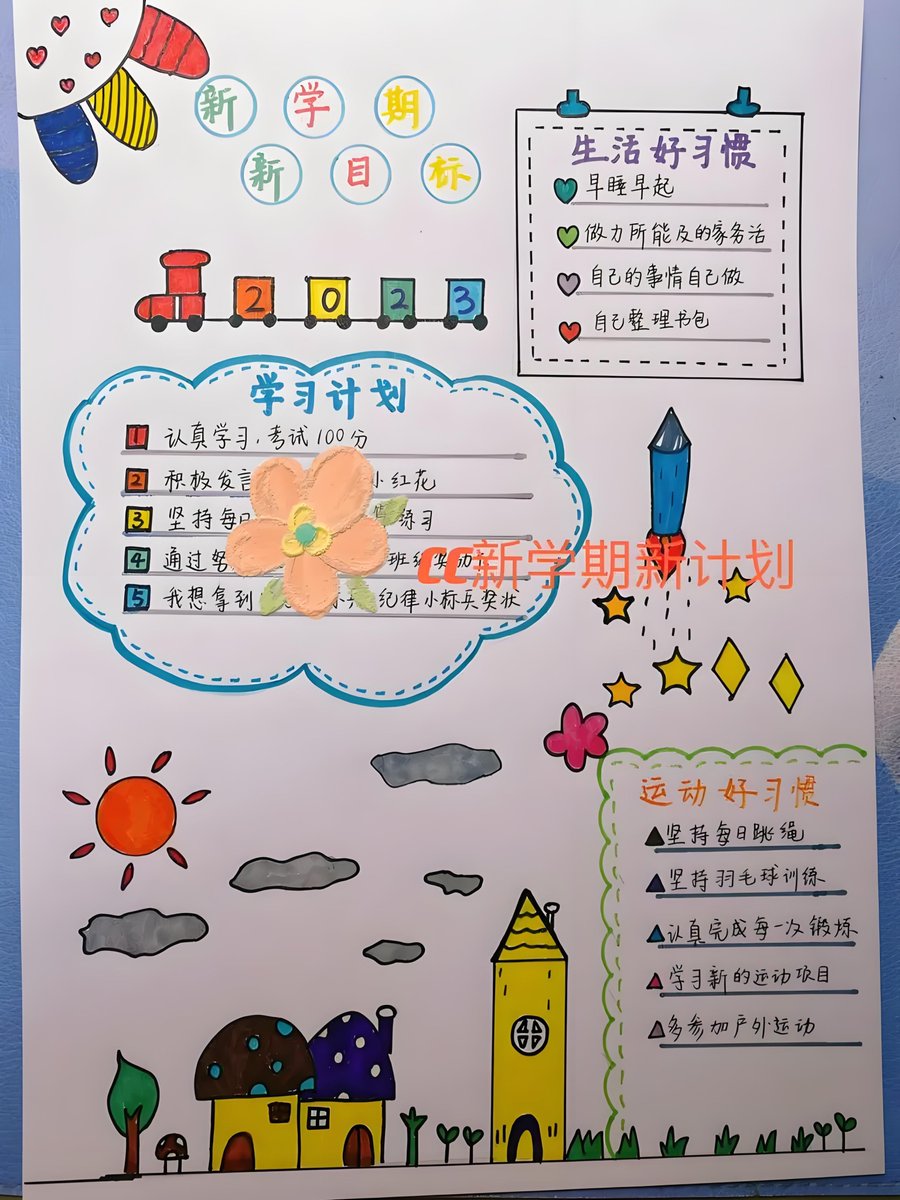 新学期
新目标
2023
生活好习惯
早睡早起
做力所能及的家务活
自己的事情自己做
自己整理书包
学习计划
1 认真学习，考试100分
2 积极发言 小红花
3 坚持每日 练习
4 通过努 班级奖励
5 我想拿到 纪律小标兵奖状
cc新学期新计划
运动好习惯
坚持每日跳绳
坚持羽毛球训练
认真完成每一次锻炼
学习新的运动项目
多参加户外运动